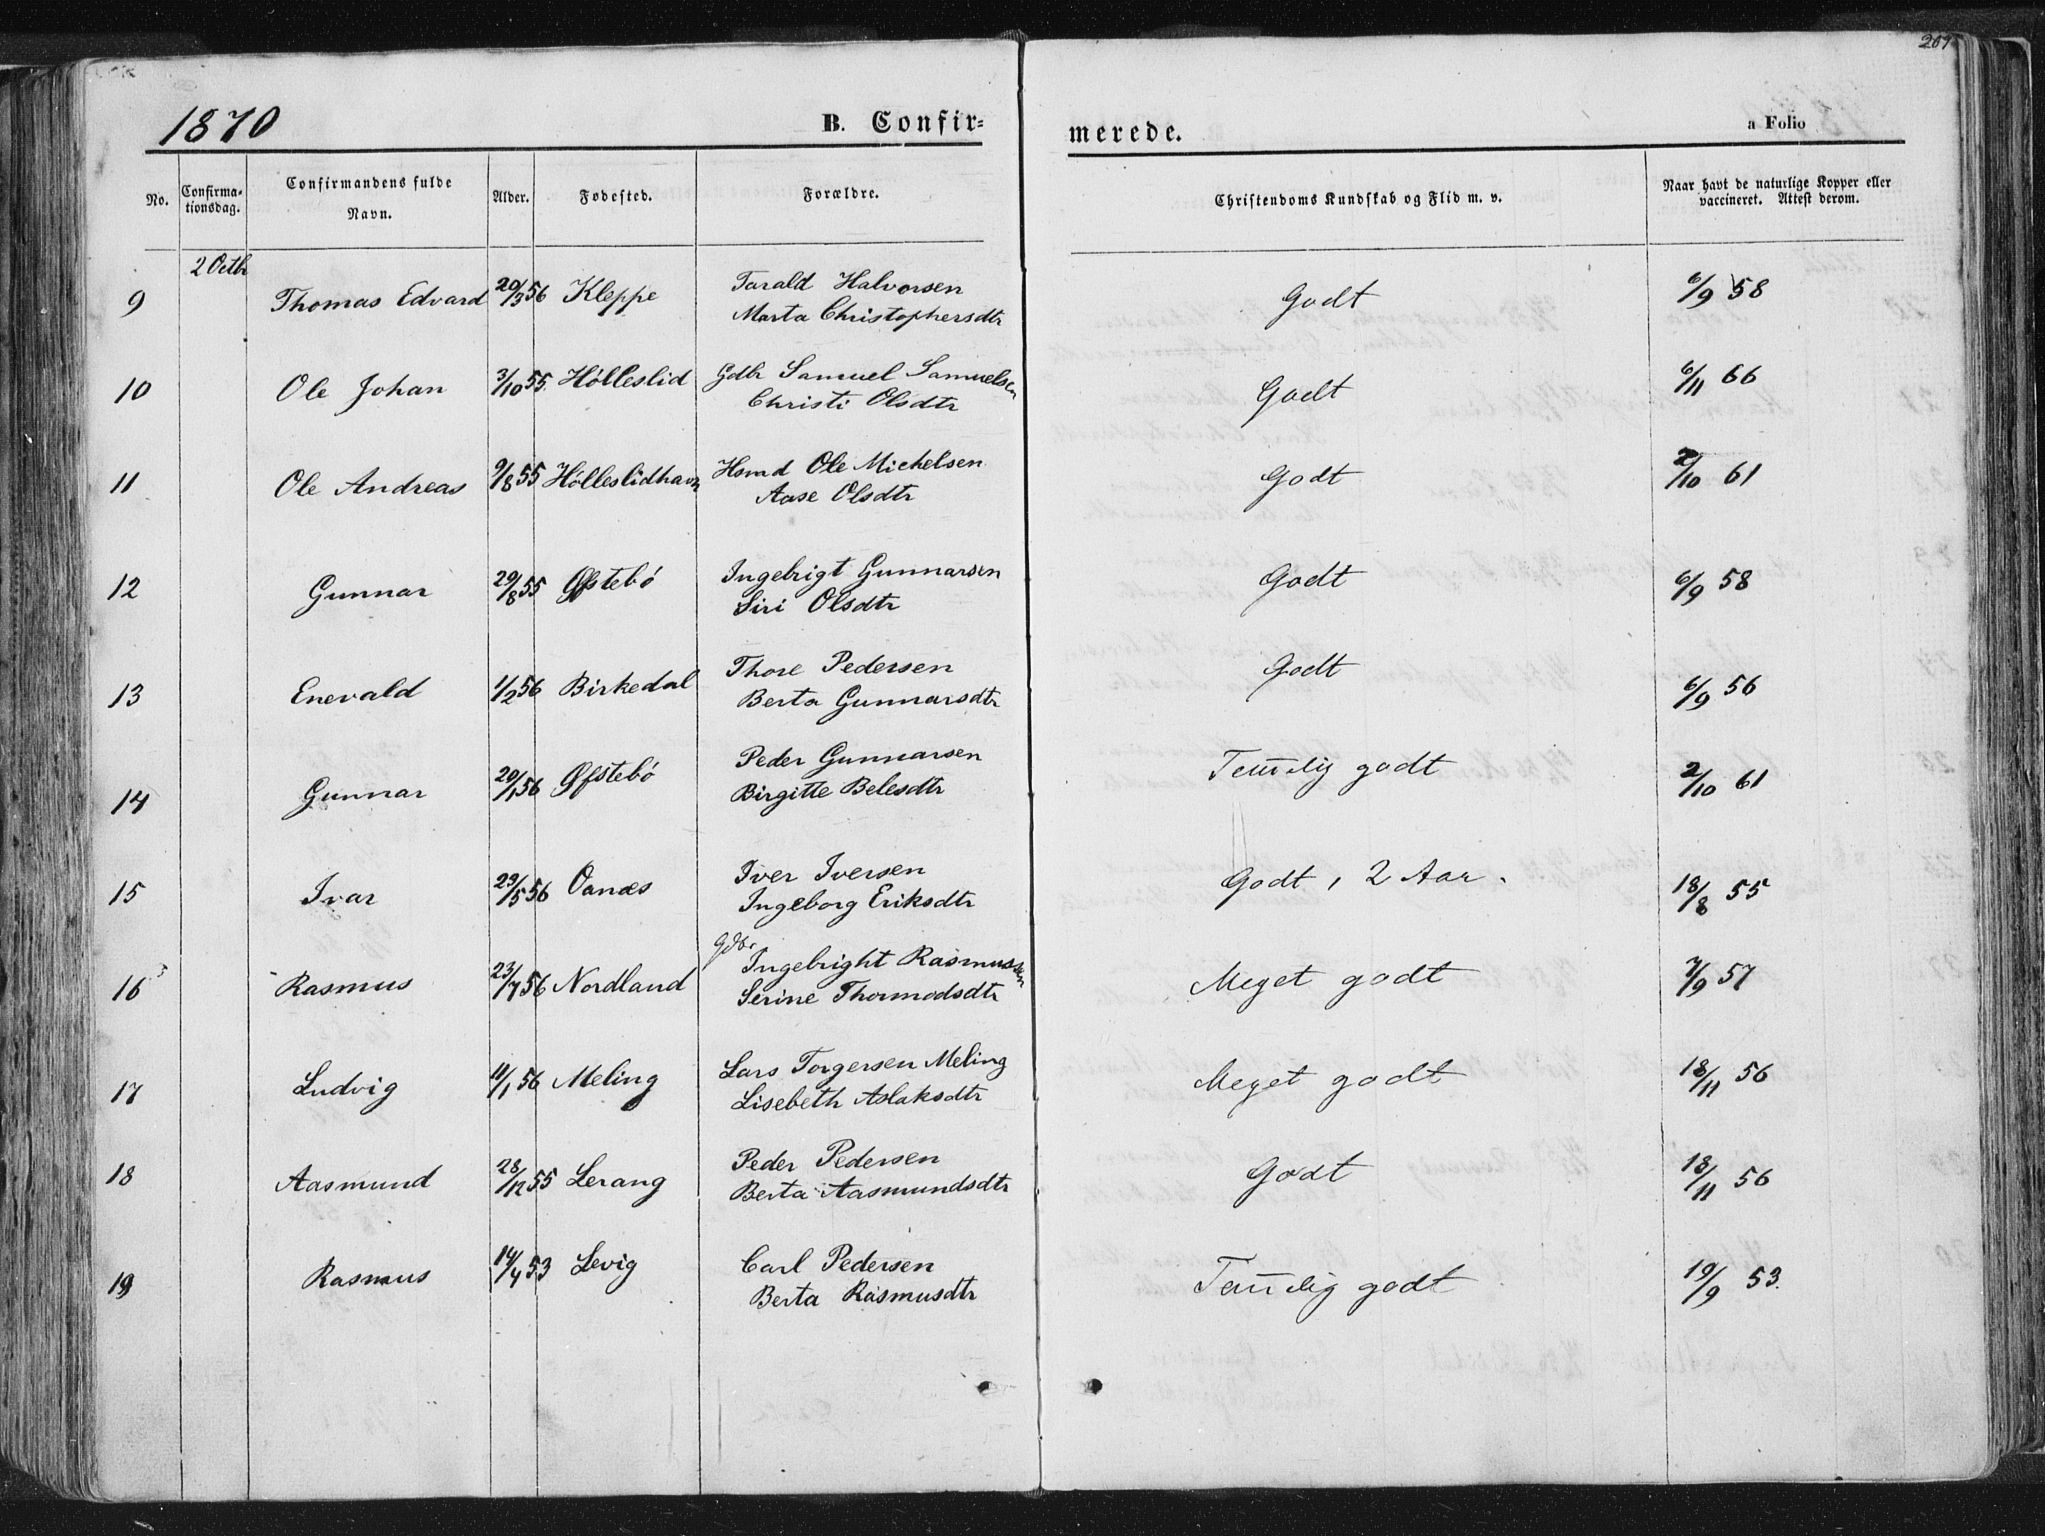 269
1870 B. Confir= merede. a Folio
No. Confirma-tionsdag. Confirmandens fulde Navn. Alder. Fødested. Forældre. Christendoms Kundskab og Flid m. v. Naar havt de naturlige Kopper eller vaccineret. Attest derom.
2 Octb
9 Thomas Edvard 20/3 56 Kleppe Tarald Halvorsen Godt 6/9 58
Marta Christophersdtr
10 Ole Johan 3/10 55. Hölleslid Gdbr Samuel Samuelsen Godt 6/11 66
Christi Olsdtr
11 Ole Andreas 9/8 55 Hölleslidhavn Hsmd Ole Michelsen Godt 2/10 61
Aase Olsdtr
12 Gunnar 29/8 55 Øfstebó Ingebrigt Gunnarsen Godt 6/9 58
Siri Olsdtr
13 Enevald 1/2 56 Birkedal Thore Pedersen Godt 6/9 56
Berta Gunnarsdtr
14 Gunnar 20/1 56 Øfstebó Peder Gunnarsen Tem̅elig godt 2/10 61
Birgitte Belesdtr
15 Ivar 29/5 56 Oanæs Iver Iversen Godt, 2 Aar. 18/8 55
Ingeborg Eriksdtr
16 Rasmus 23/7 56 Nordland Gdbr. Ingebright Rasmussen Meget godt 7/9 57
Serine Thormodsdtr
17 Ludvig 11/1 56 Meling Lars Torgersen Meling Meget godt 18/11 56
Lisebeth Aslaksdtr
18 Aasmund 28/12 55 Lerang Peder Pedersen Godt 18/11 56
Berta Aasmundsdtr
19 Rasmus 14/4 53 Levig Carl Pedersen Tem̅elig godt 19/9 53.
Berta Rasmusdtr